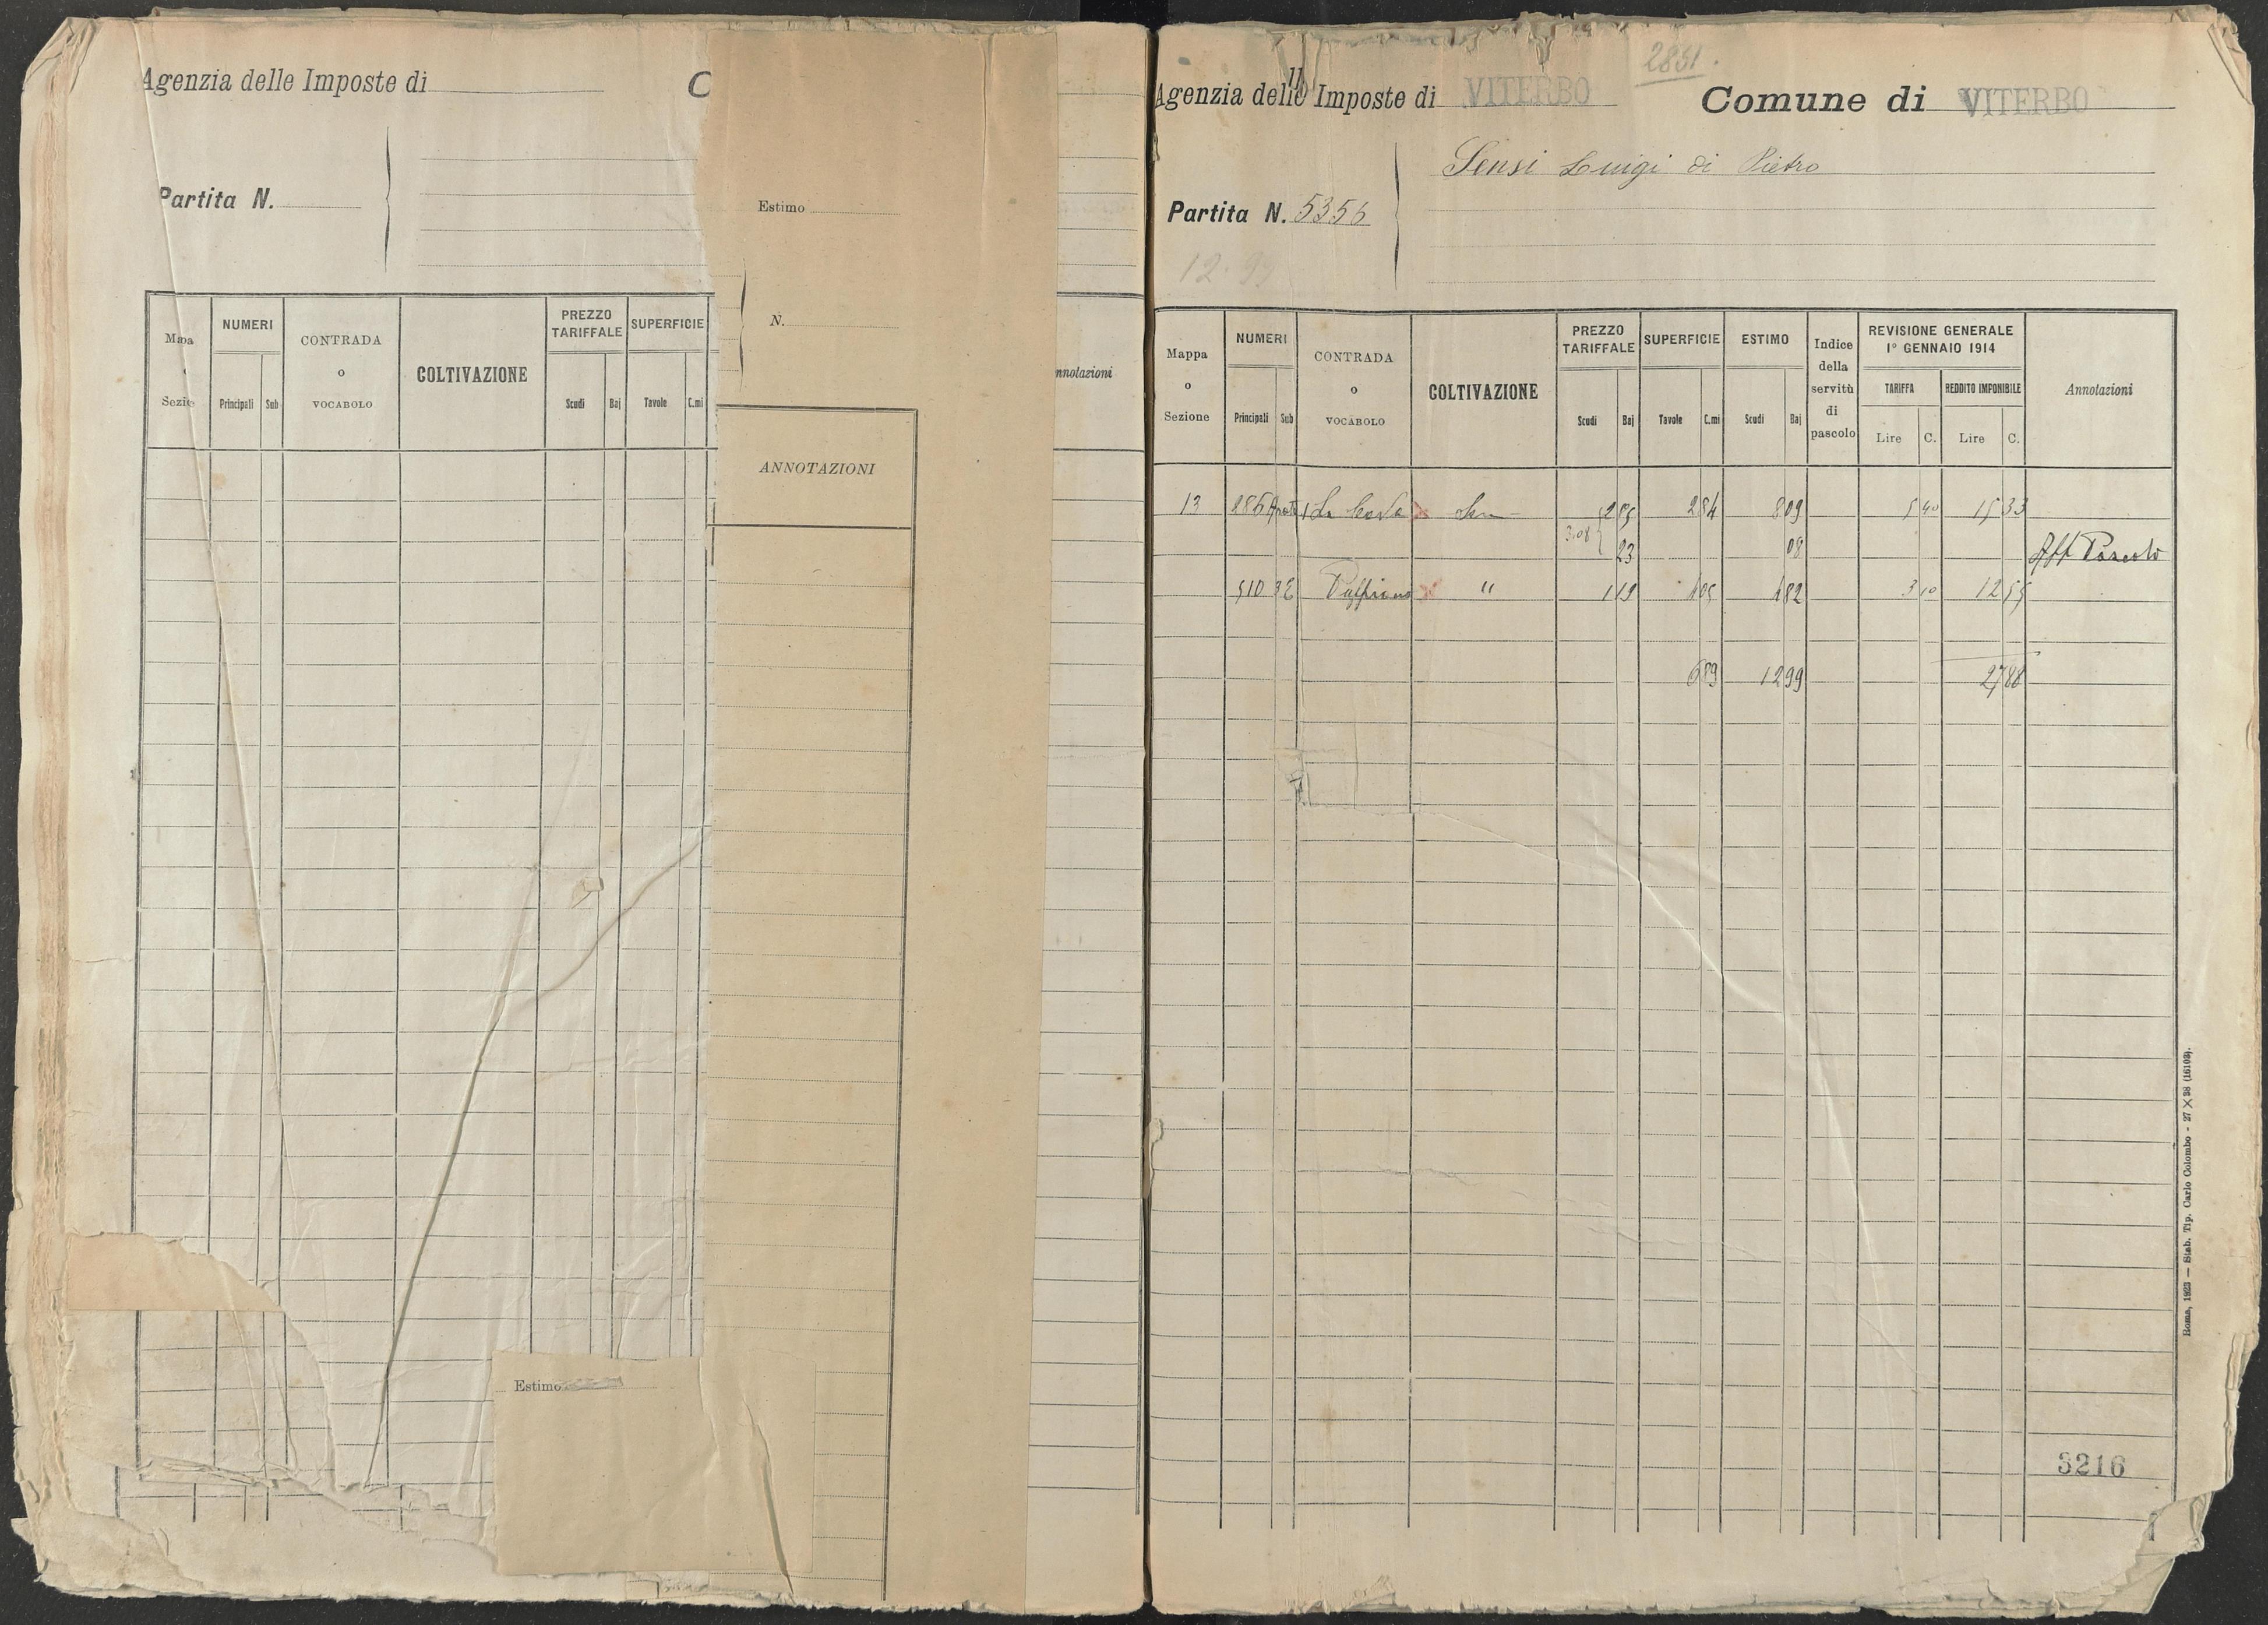 Agenzia delle Imposte di
C
Partita N.
Mappa o Sezio
NUMERI
Principali Sub
CONTRADA o VOCABOLO
COLTIVAZIONE
PREZZO TARIFFALE
Scudi Baj
SUPERFICIE
Tavole C.mi
Estimo
N.
ANNOTAZIONI
nnotazioni
Estimo
2851.
Agenzia delle Imposte di VITERBO
Comune di VITERBO
Sensi Luigi di Pietro
Partita N. 5356
12.99
Mappa o Sezione
NUMERI
Principali Sub
CONTRADA o VOCABOLO
COLTIVAZIONE
PREZZO TARIFFALE
Scudi Baj
SUPERFICIE
Tavole C.mi
ESTIMO
Scudi Baj
Indice della servitù di pascolo
REVISIONE GENERALE 1º GENNAIO 1914
TARIFFA
Lire C.
REDDITO IMPONIBILE
Lire C.
Annotazioni
13 286 2 85 2 84 8 09 5 40 15 33
3.08 23 08 Aff Pascolo
510 " 1 19 4 05 4 82 3 10 12 55
6 89 12 99 27 88
3216
Roma, 1923 — Stab. Tip. Carlo Colombo - 27 X 38 (16103).